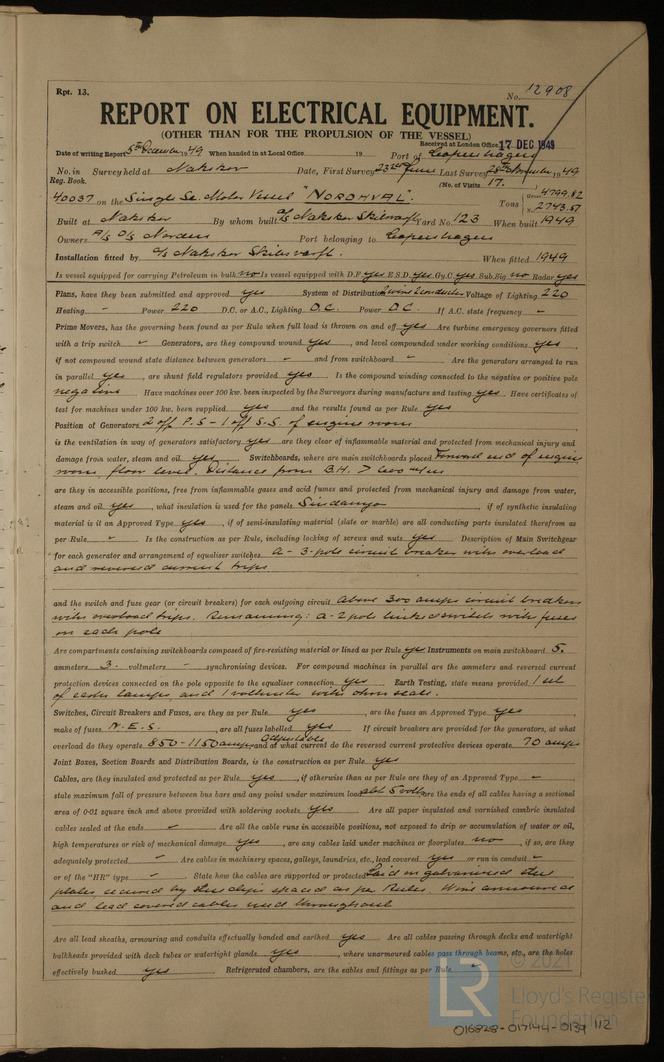 Rpt. 13.
No. 12908
REPORT ON ELECTRICAL EQUIPMENT.
(OTHER THAN FOR THE PROPULSION OF THE VESSEL)
Received at London Office 17 DEC 1949
Date of writing Report 5th December 1949 When handed in at Local Office 19 Port of Copenhagen
No. in Survey held at Nakskov Date, First Survey 23rd June Last Survey 28th November 1949
Reg. Book. (No. of Visits 17.
40037 on the Single Sc. Motor Vessel "NORDHVAL". Tons Gross 4799.82 Net 2743.57
Built at Nakskov By whom built A/S Nakskov Skibsværft Yard No. 123 When built 1949
Owners A/S D/S Norden Port belonging to Copenhagen
Installation fitted by A/S Nakskov Skibsværft. When fitted 1949
Is vessel equipped for carrying Petroleum in bulk no Is vessel equipped with D.F. yes E.S.D. yes Gy.C. yes Sub.Sig. no Radar yes
Plans, have they been submitted and approved yes System of Distribution Twin Conductor Voltage of Lighting 220
Heating - Power 220 D.C. or A.C., Lighting D.C. Power D.C. If A.C. state frequency -
Prime Movers, has the governing been found as per Rule when full load is thrown on and off yes Are turbine emergency governors fitted
with a trip switch - Generators, are they compound wound yes, and level compounded under working conditions yes,
if not compound wound state distance between generators - and from switchboard - Are the generators arranged to run
in parallel yes, are shunt field regulators provided yes Is the compound winding connected to the negative or positive pole
negative Have machines over 100 kw. been inspected by the Surveyors during manufacture and testing yes Have certificates of
test for machines under 100 kw. been supplied yes and the results found as per Rule yes
Position of Generators 2 off P.S - 1 off S.S. of engine room
is the ventilation in way of generators satisfactory yes are they clear of inflammable material and protected from mechanical injury and
damage from water, steam and oil yes Switchboards, where are main switchboards placed Forward end of engine
room, floor level. Distance from B.H. > 600 m/m
are they in accessible positions, free from inflammable gases and acid fumes and protected from mechanical injury and damage from water,
steam and oil yes, what insulation is used for the panels Sindanyo, if of synthetic insulating
material is it an Approved Type yes, if of semi-insulating material (slate or marble) are all conducting parts insulated therefrom as
per Rule - Is the construction as per Rule, including locking of screws and nuts yes Description of Main Switchgear
for each generator and arrangement of equaliser switches A - 3-pole circuit breaker with overload
and reversed current trips
and the switch and fuse gear (or circuit breakers) for each outgoing circuit Above 300 amps circuit breakers
with overload trips. Remaining: a - 2 pole linked switch with fuses
on each pole
Are compartments containing switchboards composed of fire-resisting material or lined as per Rule yes Instruments on main switchboard 5.
ammeters 3. voltmeters - synchronising devices. For compound machines in parallel are the ammeters and reversed current
protection devices connected on the pole opposite to the equaliser connection yes Earth Testing, state means provided 1 set
of earth lamps and 1 voltmeter with ohm scale.
Switches, Circuit Breakers and Fuses, are they as per Rule yes, are the fuses an Approved Type yes,
make of fuses N.E.S., are all fuses labelled yes If circuit breakers are provided for the generators, at what
overload do they operate 850-1150 amps adjustable and at what current do the reversed current protective devices operate 70 amps
Joint Boxes, Section Boards and Distribution Boards, is the construction as per Rule yes
Cables, are they insulated and protected as per Rule yes, if otherwise than as per Rule are they of an Approved Type -
state maximum fall of pressure between bus bars and any point under maximum load abt 5 volts are the ends of all cables having a sectional
area of 0·01 square inch and above provided with soldering sockets yes Are all paper insulated and varnished cambric insulated
cables sealed at the ends - Are all the cable runs in accessible positions, not exposed to drip or accumulation of water or oil,
high temperatures or risk of mechanical damage yes, are any cables laid under machines or floorplates no, if so, are they
adequately protected - Are cables in machinery spaces, galleys, laundries, etc., lead covered yes or run in conduit -
or of the "HR" type - State how the cables are supported or protected Laid on galvanised steel
plates secured by steel clips spaced as per Rules. Wire armoured
and lead covered cables used throughout
Are all lead sheaths, armouring and conduits effectually bonded and earthed yes Are all cables passing through decks and watertight
bulkheads provided with deck tubes or watertight glands yes, where unarmoured cables pass through beams, etc., are the holes
effectively bushed yes Refrigerated chambers, are the cables and fittings as per Rule -
© 2021
LR
Lloyd's Register
Foundation
016828-017144-0139 1/2